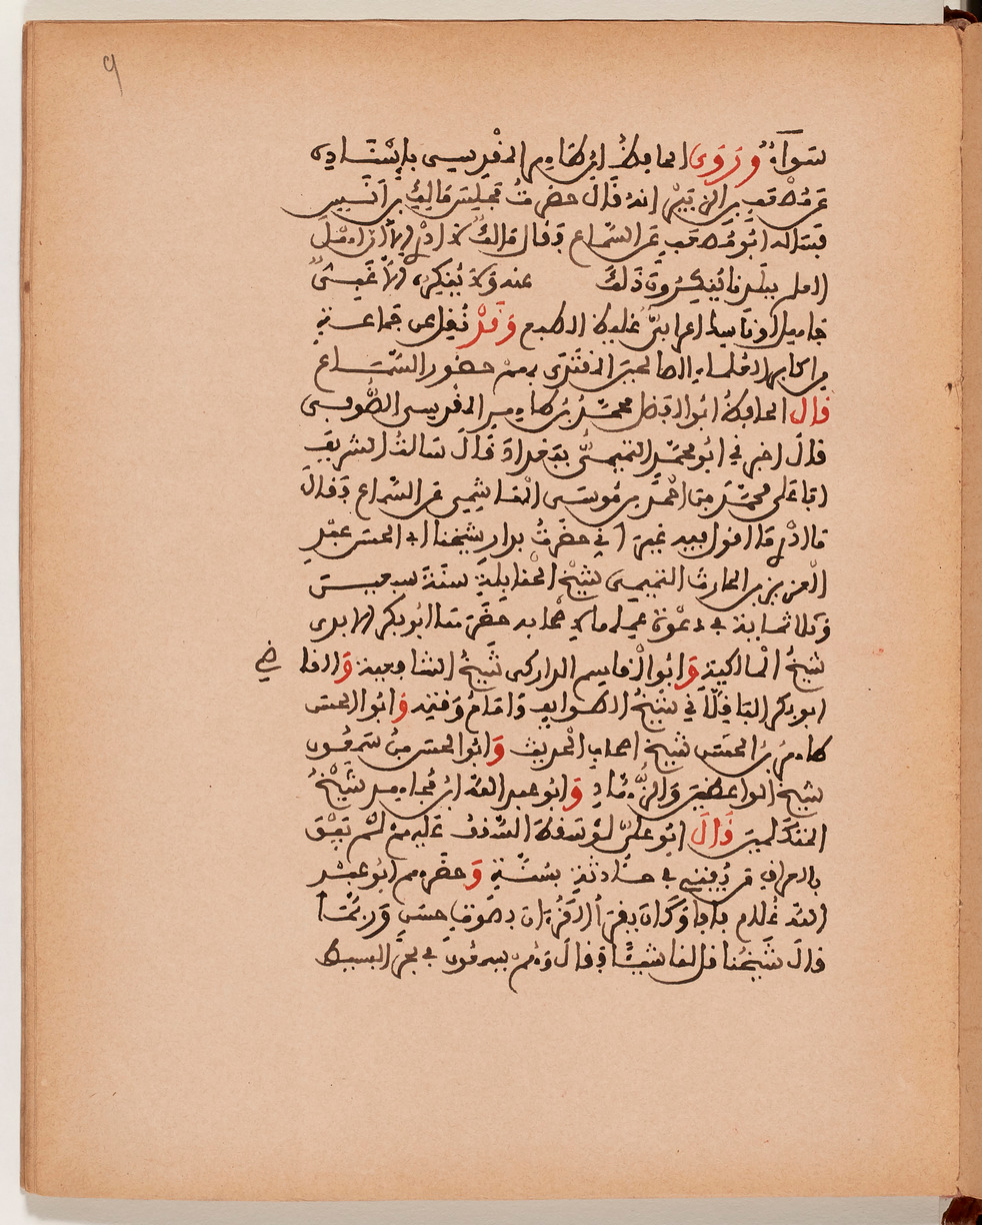 ٩
سَوَآءٌ وَرَوَى الحافظ ابن طاهر المقدسي بإسناده
عن مصعب بن الزبير انه قال حضرتُ مجلس مالك بن أنس
فسأله ابو مصعب عن السماع فقال مالك لا ادري الا ان اهل
العلم ببلدنا لا ينكرون ذلك عنه ولا ينكره الا غبيٌّ
جاهل او ناسك اعرابيٌّ غليظ الطبع وَقَدْ نقل عن جماعة
من اكابر العلماء الصالحين المقتدى بهم حضور السماع
قال الحافظ ابو الفضل محمد بن طاهر المقدسي الصوفي
قال اخبرني ابو محمد التميمي ببغداد قال سالت الشريف
ابا علي محمد بن احمد بن موسى الهاشمي عن السماع فقال
ما ادري ما اقول فيه غير اني حضرت بدار شيخنا ابي الحسن عبد
العزيز بن الحارث التميمي شيخ الحنابلة سنة سبعين
وثلاثماية في دعوة عملها لاصحابه حضرها ابو بكر الابهري
شيخ المالكية وَابو القاسم الداركي شيخ الشافعية وَالقا ضي
ابو بكر الباقلاني شيخ الطوايف وامام وقته وَابو الحسن
طاهر بن الحسن شيخ اصحاب الحديث وَابو الحسن بن سمعون
شيخ الواعظين والزهاد وَابو عبد الله ابن مجاهد شيخ
المتكلمين قال ابو علي لو سقط السقف عليهم لم يبق
بالعراق من يفتي في حادثة بسنة وَحضرهم ابو عبد
الله غلام بابا وكان يقرأ القرآن بصوت حسن وربما
قال شيخنا قل لنا شيئا فقال وهم يسمعون في بحر البسيط